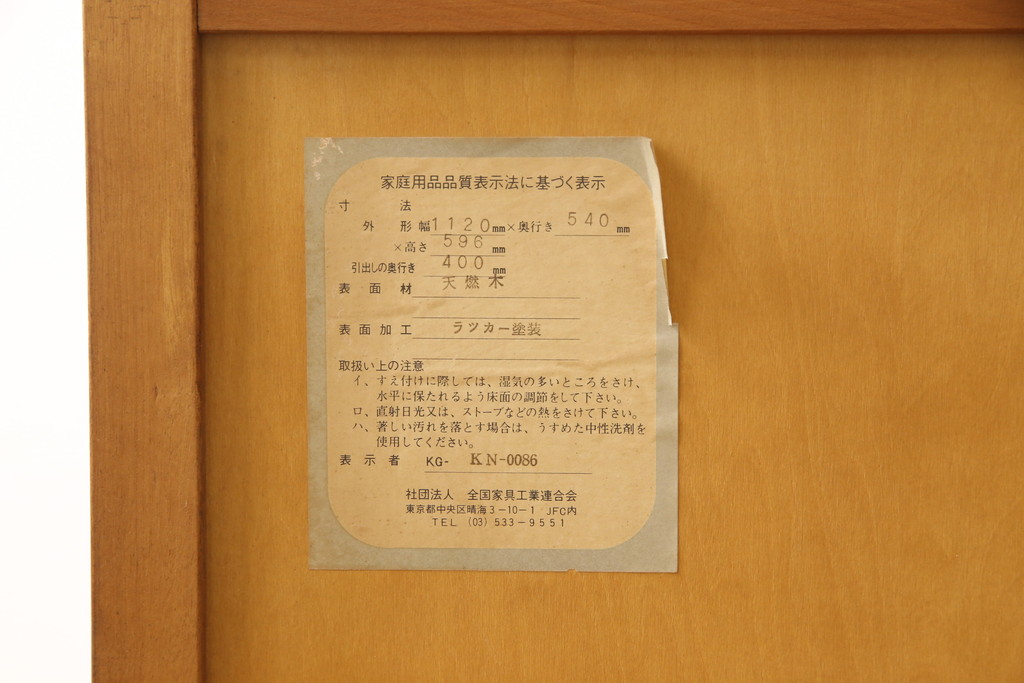 家庭用品品質表示法に基づく表示
寸法
外形 幅1120mm×奥行き 540mm
×高さ 596mm
引出しの奥行き 400mm
表面材 天燃木
表面加工 ラツカー塗装
取扱い上の注意
イ、すえ付けに際しては、湿気の多いところをさけ、
水平に保たれるよう床面の調節をして下さい。
ロ、直射日光又は、ストーブなどの熱をさけて下さい。
ハ、著しい汚れを落とす場合は、うすめた中性洗剤を
使用してください。
表示者 KG- KN-0086
社団法人 全国家具工業連合会
東京都中央区晴海3-10-1 JFC内
TEL (03) 533-9551